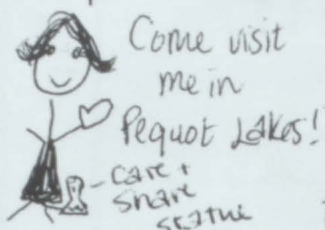 Come visit
me in
Pequot Lakes!
- care +
share
statue